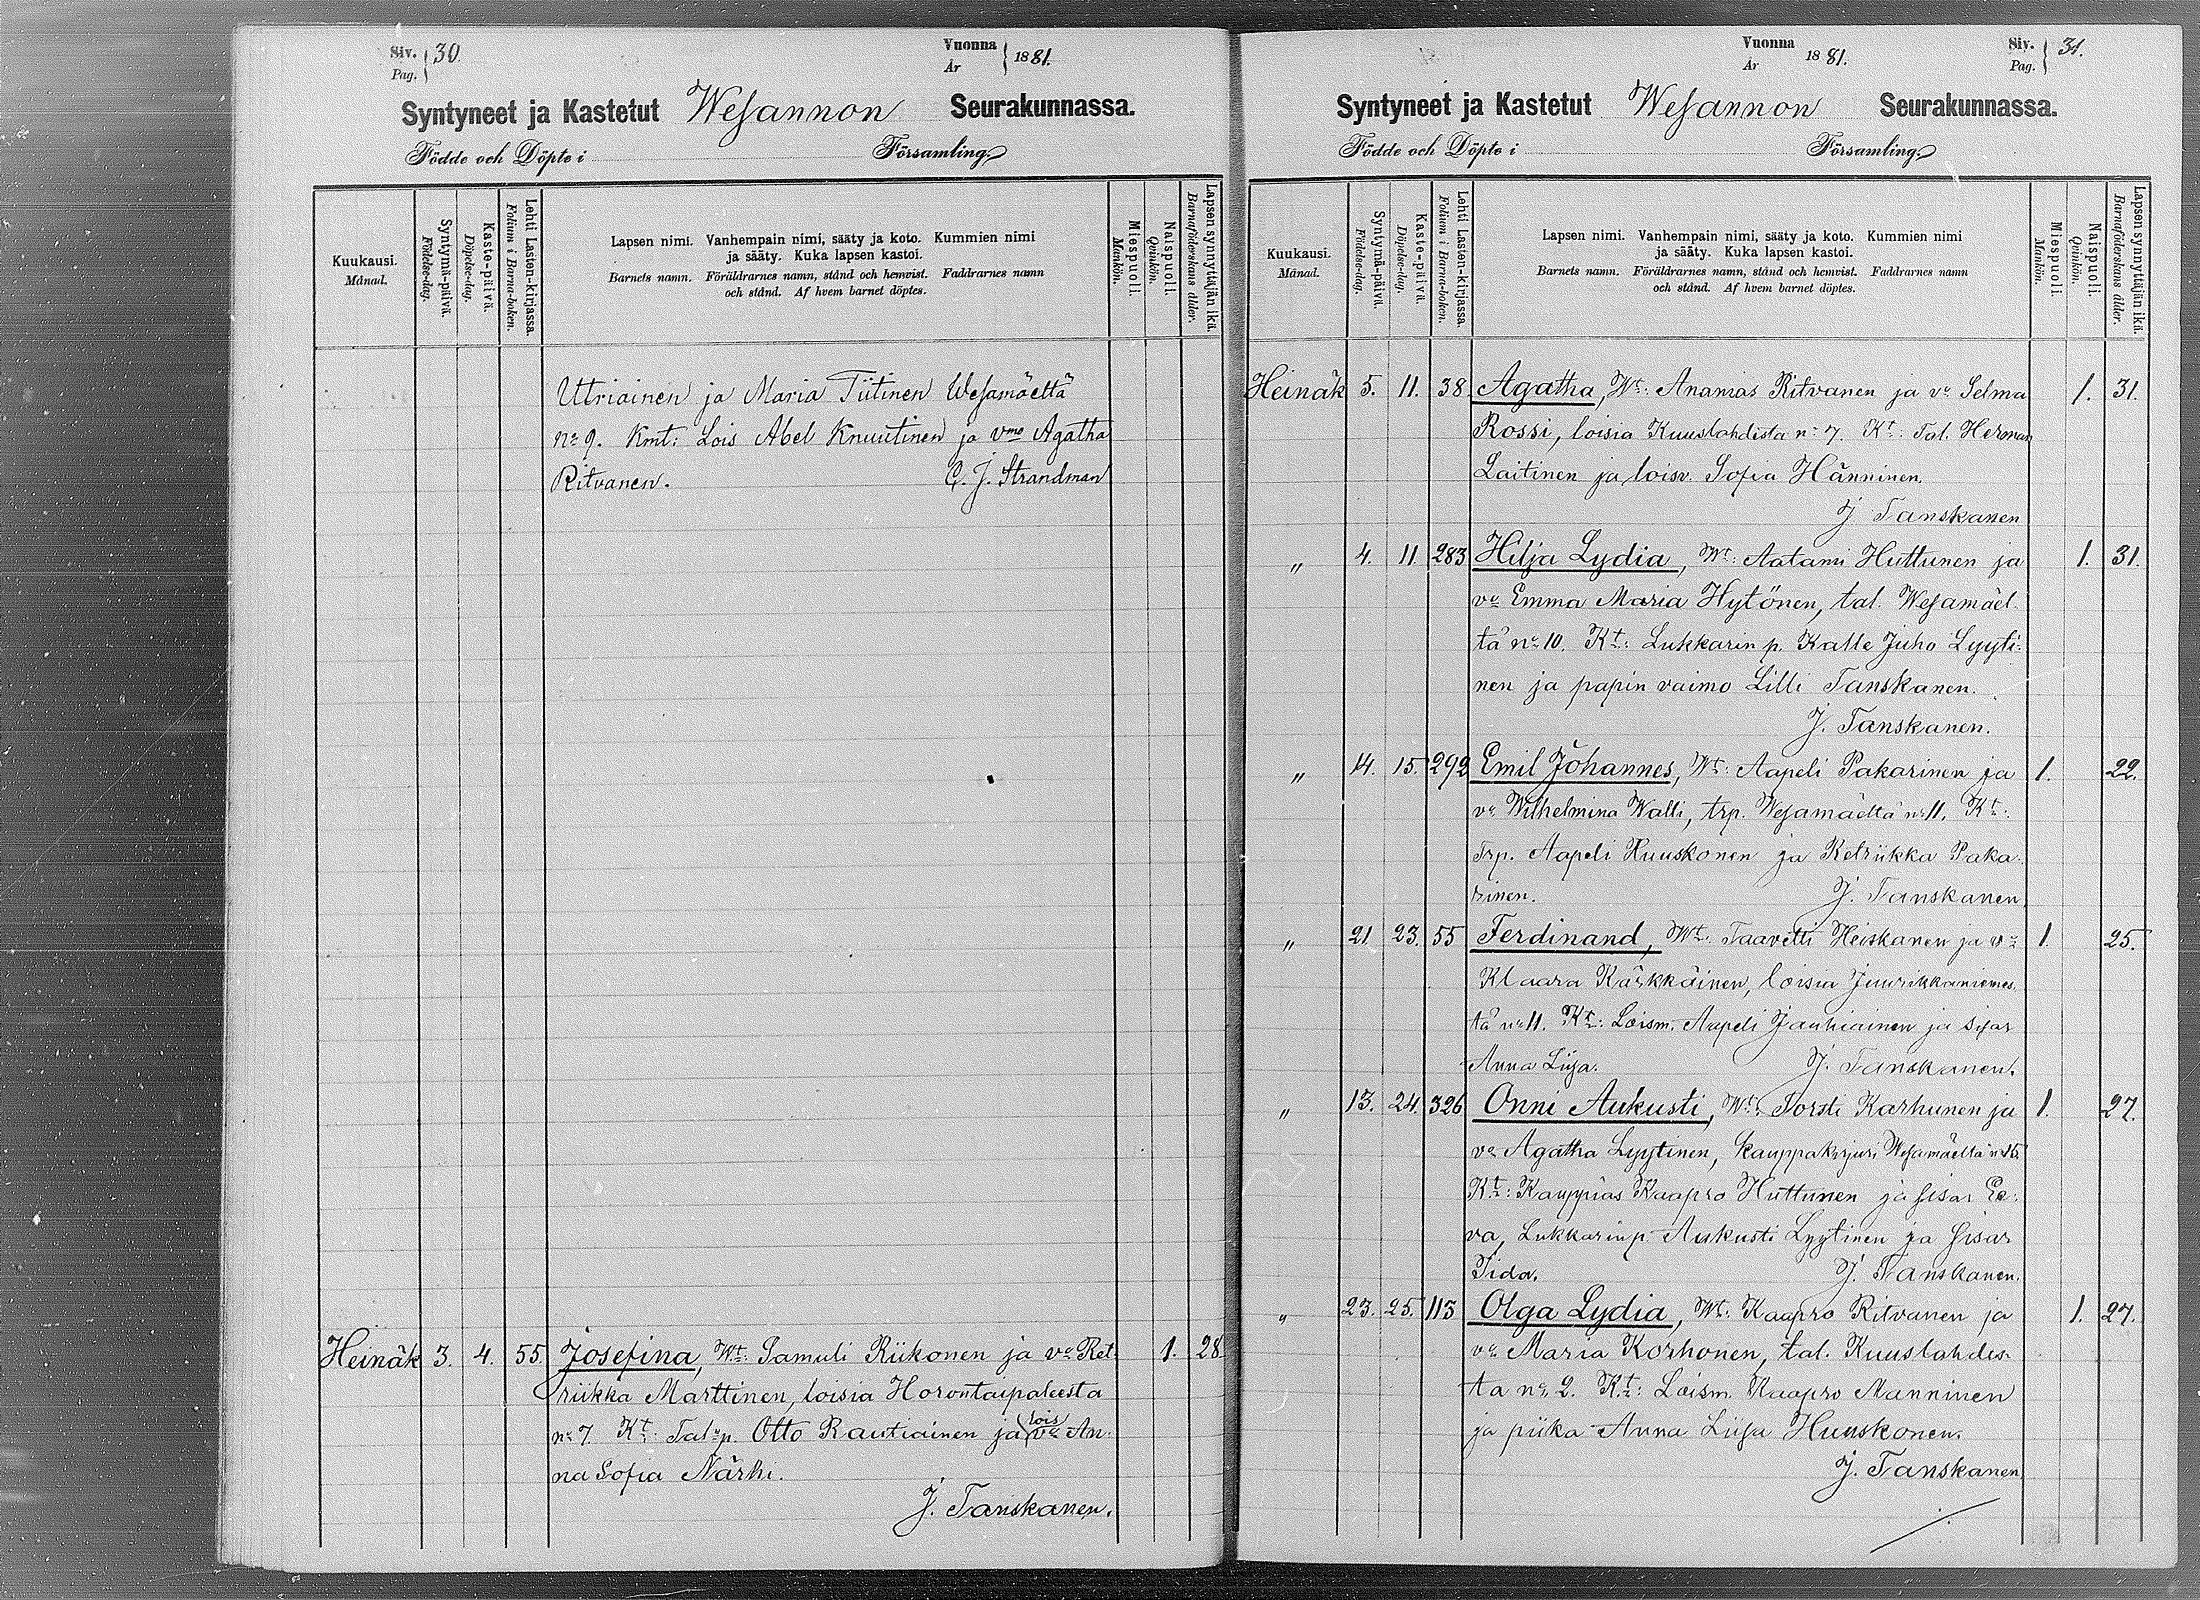 Siv. 30.
Pag.
Vuonna 1881.
År
Syntyneet ja Kastetut Wesannon Seurakunnassa.
Födde och Döpte i Församling.
Kuukausi. Månad.
Syntymä-päivä. Födelse-dag.
Kaste-päivä. Döpelse-dag.
Lehti Lasten-kirjassa. Folium i Barna-boken.
Lapsen nimi. Vanhempain nimi, sääty ja koto. Kummien nimi
ja sääty. Kuka lapsen kastoi.
Barnets namn. Föräldrarnes namn, stånd och hemvist. Faddrarnes namn
och stånd. Af hvem barnet döptes.
Miespuoli. Mankön.
Naispuoli. Qvinkön.
Lapsen synnyttäjän ikä. Barnaföderskans ålder.
Utriainen ja Maria Tiitinen Wesamäeltä
no 9. Kmt: Lois Abel Knuutinen ja vmo Agatha
Ritvanen. C. J. Strandman
Heinäk 3. 4. 55. Josefina, Wt: Samuli Riikonen ja vo Ret- 1. 28
riikka Marttinen, loisia Horontaipaleesta
no 7. Kt: Talp. Otto Rautiainen ja lois vo An-
na Sofia Närhi.
J. Tanskanen.
Vuonna 1881.
År
Siv. 31.
Pag.
Syntyneet ja Kastetut Wesannon Seurakunnassa.
Födde och Döpte i Församling.
Kuukausi. Månad.
Syntymä-päivä. Födelse-dag.
Kaste-päivä. Döpelse-dag.
Lehti Lasten-kirjassa. Folium i Barna-boken.
Lapsen nimi. Vanhempain nimi, sääty ja koto. Kummien nimi
ja sääty. Kuka lapsen kastoi.
Barnets namn. Föräldrarnes namn, stånd och hemvist. Faddrarnes namn
och stånd. Af hvem barnet döptes.
Miespuoli. Mankön.
Naispuoli. Qvinkön.
Lapsen synnyttäjän ikä. Barnaföderskans ålder.
Heinäk 5. 11. 38 Agatha, Wt: Ananias Ritvanen ja vo Selma 1. 31.
Rossi, loisia Kuuslahdista no 7. Kt: Tal. Herman
Laitinen ja loisv. Sofia Hänninen.
J Tanskanen
" 4. 11. 283 Hilja Lydia, Wt: Aatami Huttunen ja 1. 31.
vo Emma Maria Hytönen, tal. Wesamäel-
tä no 10. Kt: Lukkarin p. Kalle Juho Lyyti-
nen ja papin vaimo Lilli Tanskanen.
J. Tanskanen.
" 14. 15. 292 Emil Johannes, Wt: Aapeli Pakarinen ja 1. 22.
vo Wilhelmina Walli, trp. Wesamäeltä no 11. Kt:
Trp. Aapeli Huuskonen ja Retriikka Paka-
rinen. J. Tanskanen
" 21 23. 55 Ferdinand, Wt: Taavetti Heiskanen ja vo 1. 25.
Klaara Kärkkäinen, loisia Juurikkaniemes-
tä no 11. Kt: Loism. Aapeli Jauhiainen ja sisar
Anna Liisa. J. Tanskanen.
" 13. 24. 326 Onni Aukusti, Wt: Torsti Karhunen ja 1. 27.
vo Agatha Lyytinen, kauppakirjuri Wesamäeltä no 15.
Kt: Kauppias Kaapro Huttunen ja sisar Ee-
va, Lukkarinp. Aukusti Lyytinen ja sisar
Iida. J. Tanskanen.
" 23. 25. 113 Olga Lydia, Wt: Kaapro Ritvanen ja 1. 27.
vo Maria Korhonen, tal. Kuuslahdes-
ta no 2. Kt: Loism. Kaapro Manninen
ja piika Anna Liisa Huuskonen.
J. Tanskanen